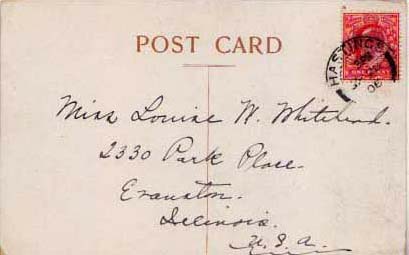 POST CARD
HASTINGS
ONE PENNY
Miss Louise W. Whitehead.
2330 Park Place.
Evanston.
Illinois.
U.S.A.